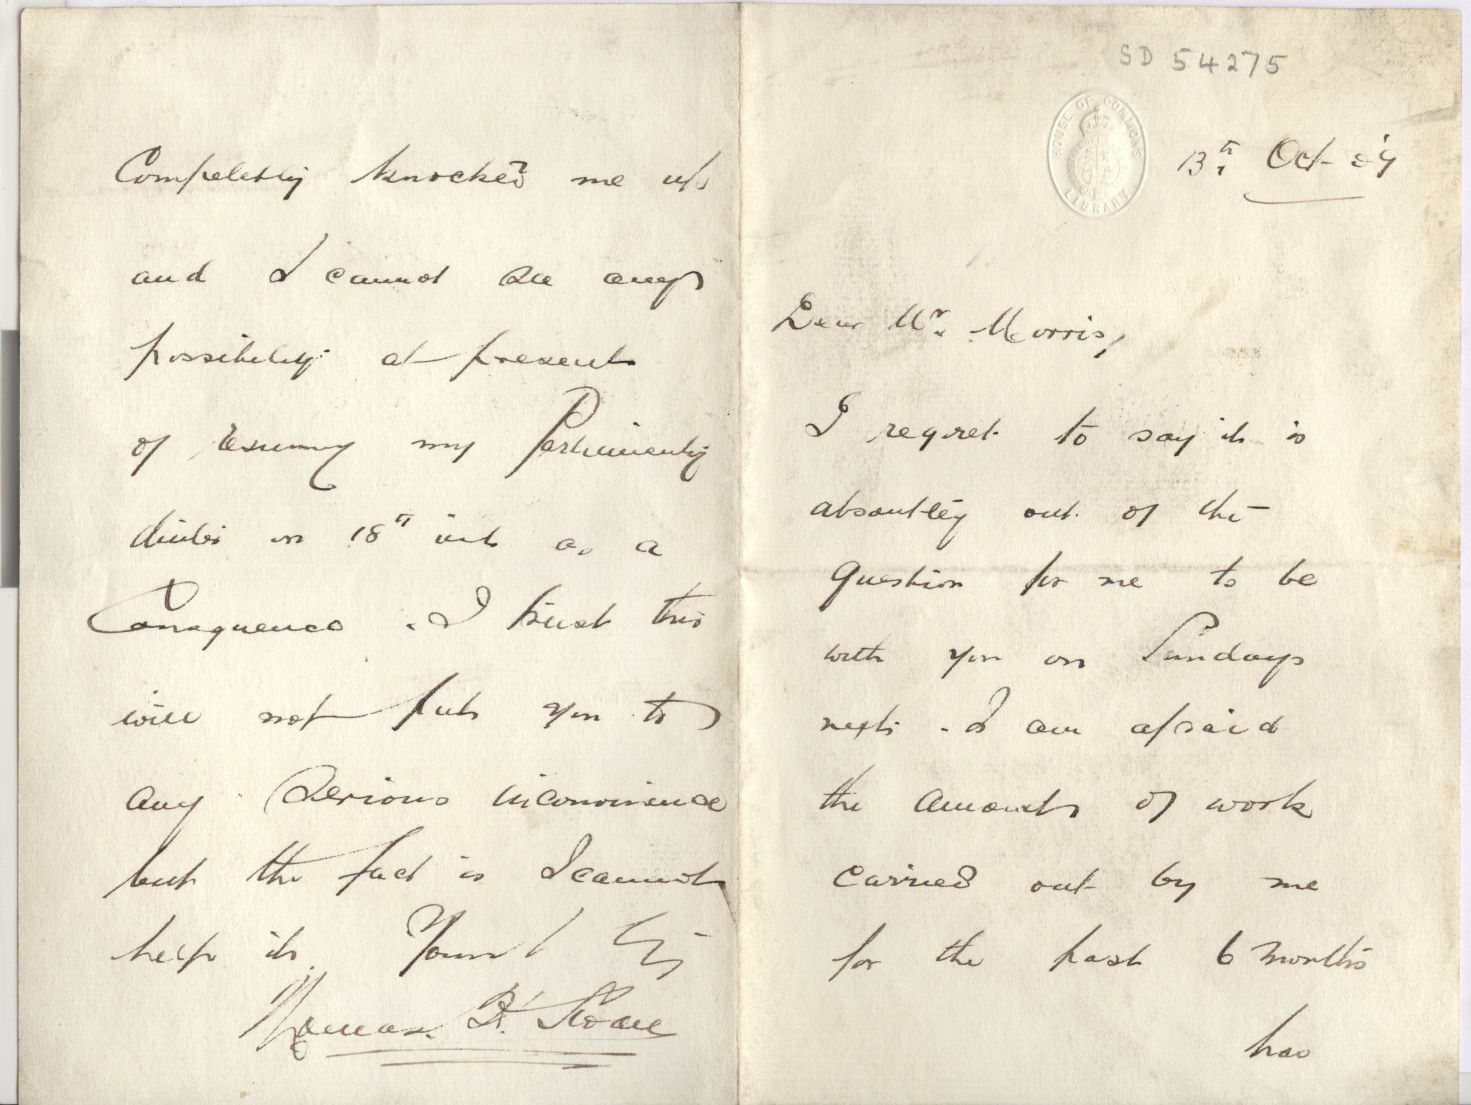 SD 54275
HOUSE OF COMMONS LIBRARY
13th Oct
Dear Mr. Morris,
I regret to say it is
absoutley out of the
question for me to be
with you on Sunday
next. I am afraid
the amount of work
carried out by me
for the past 6 months
has
Completely knocked me up
and I cannot see any
possibility at present
of resuming my Parliamentry
duties on 18th inst as a
Consequence. I trust this
will not put you to
any serious inconvinence
but the fact is I cannot
help it. Yours
Thomas H. Sloan